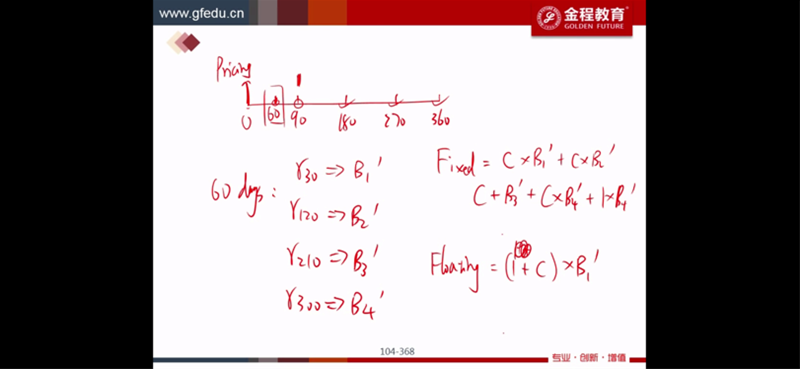 www.gfedu.cn
金程教育
GOLDEN FUTURE
Pricing
0 60 90 180 270 360
60 days:
r30 => B1'
r120 => B2'
r210 => B3'
r300 => B4'
Fixed = C × B1' + C × B2'
C + B3' + C × B4' + 1 × B4'
Floating = (1 + C) × B1'
104-368
专业·创新·增值